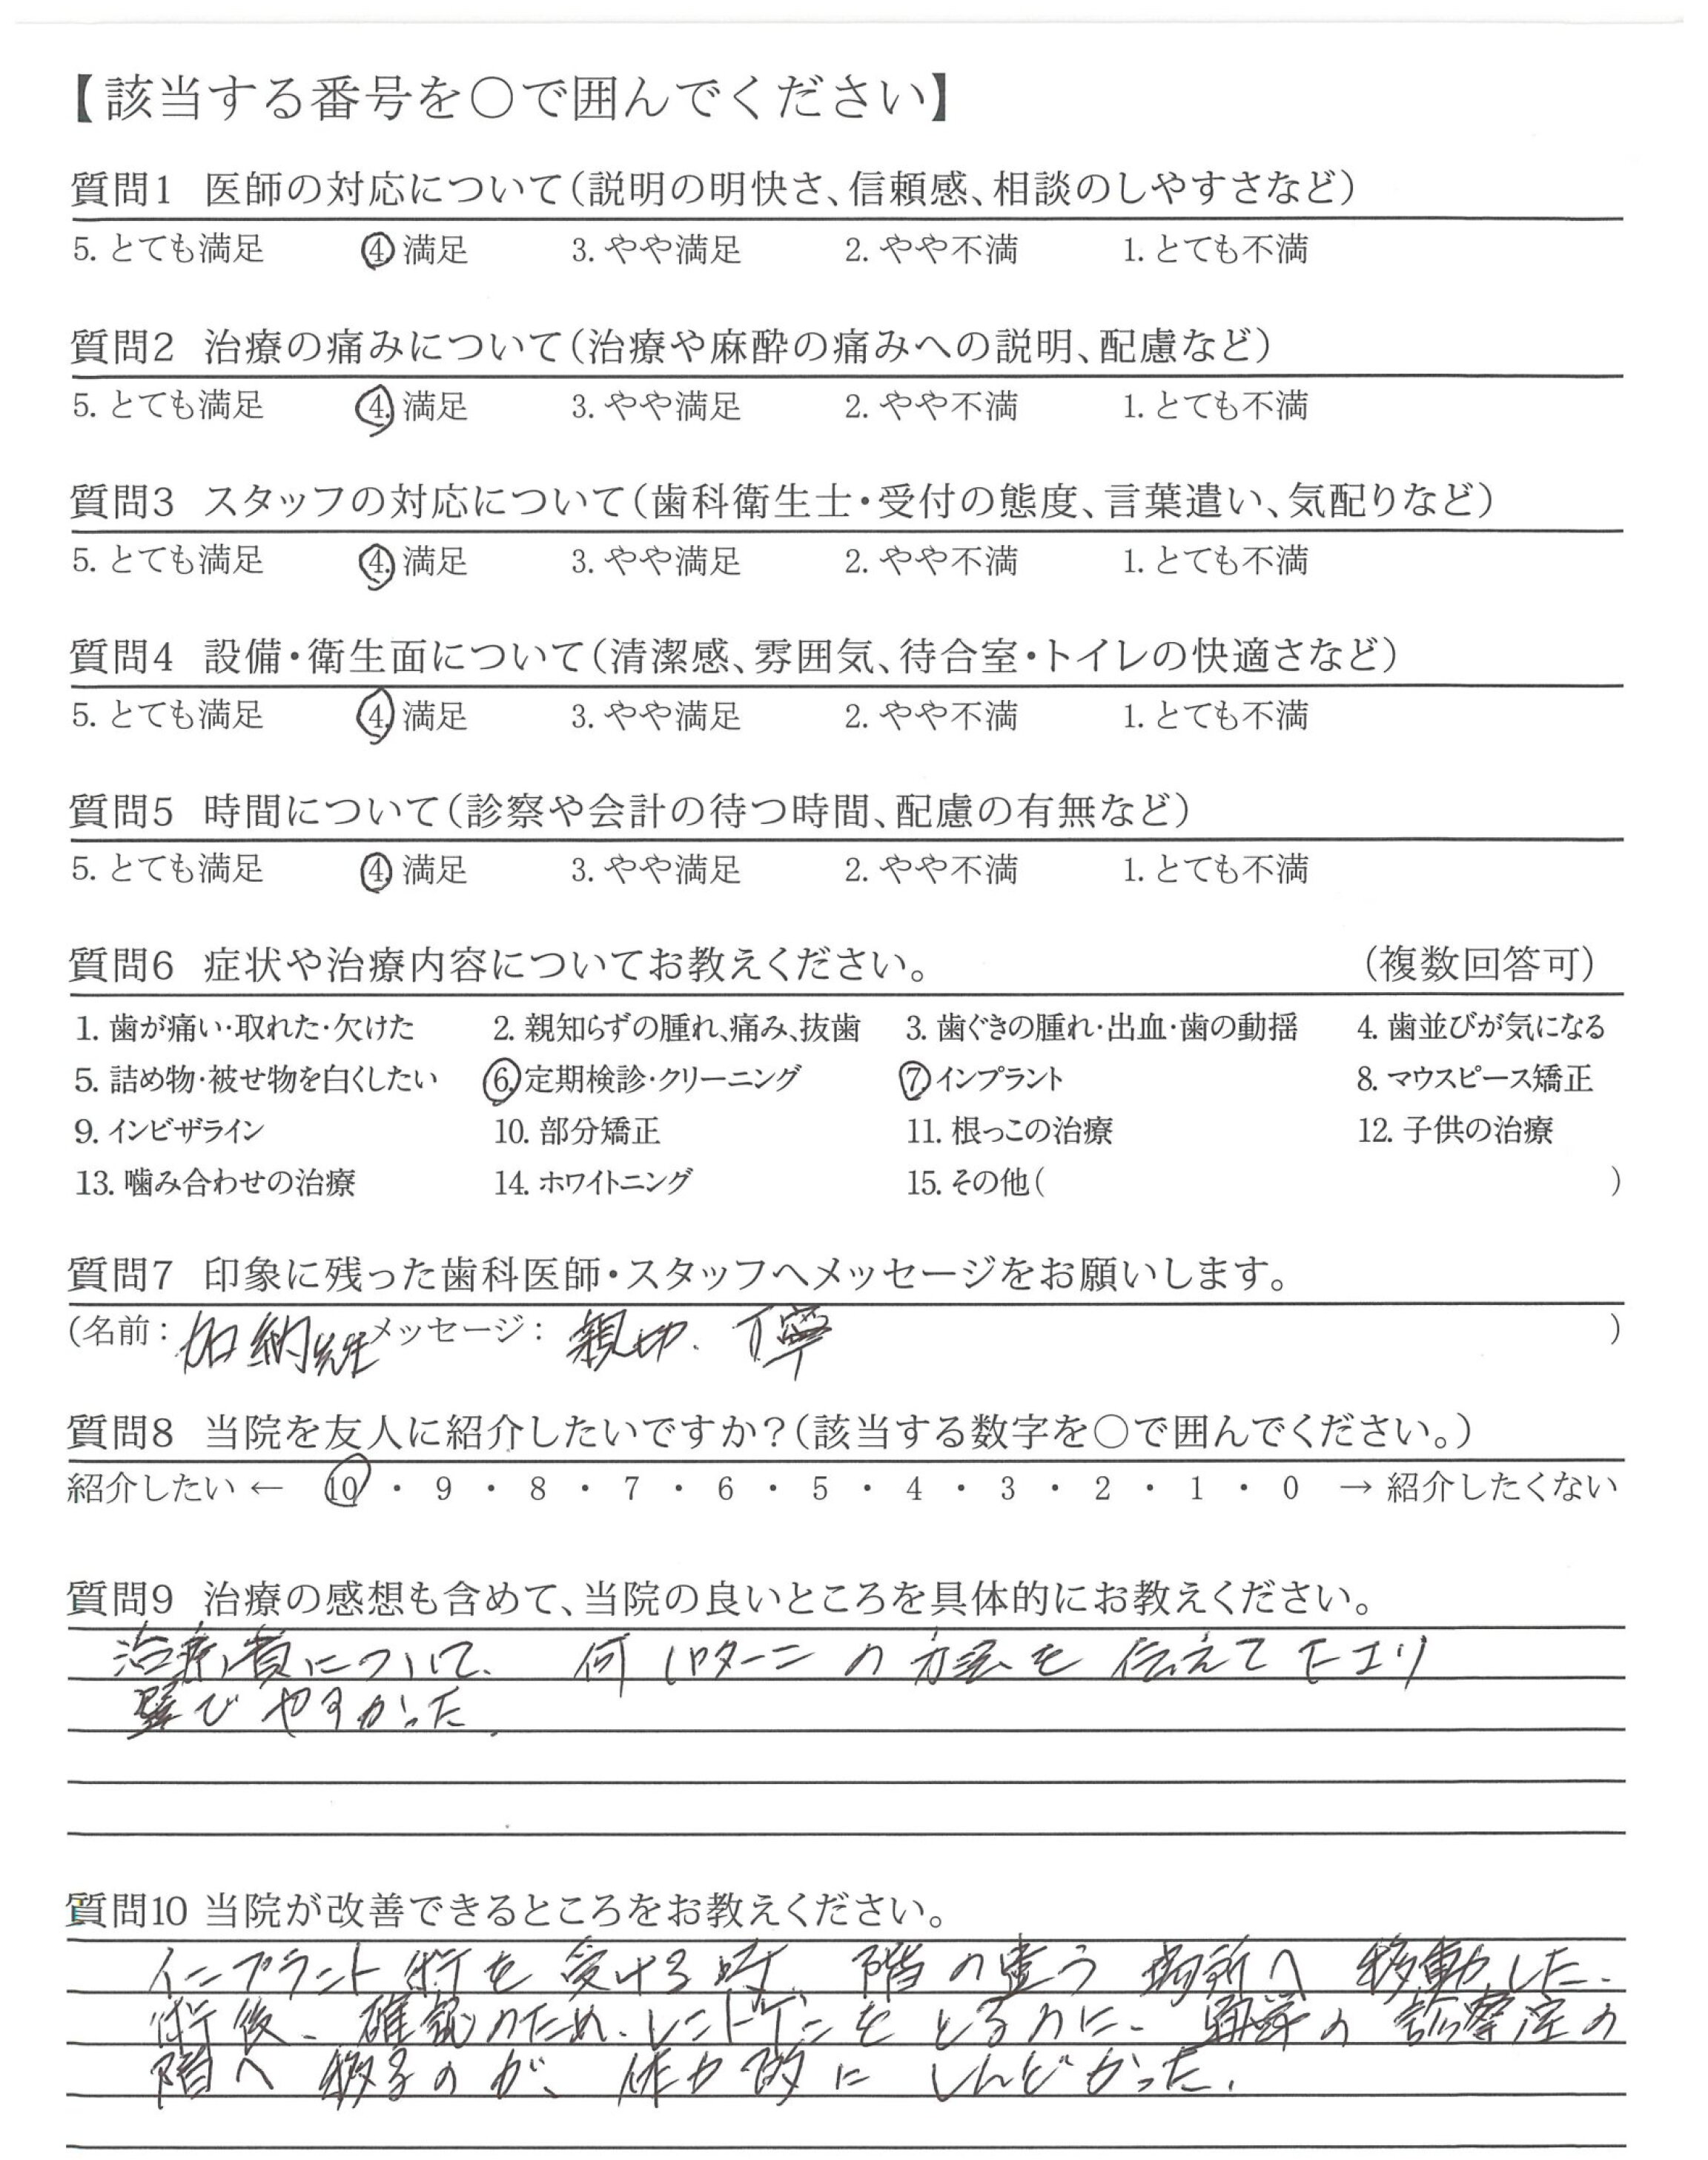 【該当する番号を○で囲んでください】
質問1 医師の対応について(説明の明快さ、信頼感、相談のしやすさなど)
5. とても満足 4. 満足 3. やや満足 2. やや不満 1. とても不満
質問2 治療の痛みについて(治療や麻酔の痛みへの説明、配慮など)
5. とても満足 4. 満足 3. やや満足 2. やや不満 1. とても不満
質問3 スタッフの対応について(歯科衛生士・受付の態度、言葉遣い、気配りなど)
5. とても満足 4. 満足 3. やや満足 2. やや不満 1. とても不満
質問4 設備・衛生面について(清潔感、雰囲気、待合室・トイレの快適さなど)
5. とても満足 4. 満足 3. やや満足 2. やや不満 1. とても不満
質問5 時間について(診察や会計の待つ時間、配慮の有無など)
5. とても満足 4. 満足 3. やや満足 2. やや不満 1. とても不満
質問6 症状や治療内容についてお教えください。 (複数回答可)
1. 歯が痛い・取れた・欠けた 2. 親知らずの腫れ、痛み、抜歯 3. 歯ぐきの腫れ・出血・歯の動揺 4. 歯並びが気になる
5. 詰め物・被せ物を白くしたい 6. 定期検診・クリーニング 7. インプラント 8. マウスピース矯正
9. インビザライン 10. 部分矯正 11. 根っこの治療 12. 子供の治療
13. 噛み合わせの治療 14. ホワイトニング 15. その他( )
質問7 印象に残った歯科医師・スタッフへメッセージをお願いします。
(名前: 加納先生 メッセージ: 親切、丁寧 )
質問8 当院を友人に紹介したいですか?(該当する数字を○で囲んでください。)
紹介したい ← 10 ・ 9 ・ 8 ・ 7 ・ 6 ・ 5 ・ 4 ・ 3 ・ 2 ・ 1 ・ 0 → 紹介したくない
質問9 治療の感想も含めて、当院の良いところを具体的にお教えください。
治療費について、何パターンの方法を伝えて下エリ
選びやすかった。
質問10 当院が改善できるところをお教えください。
インプラント術を受ける時、階の違う場所へ移動した。
術後、確認のため、レントゲンをとるのに、通常の診察室の
階へ移るのが、体力的にしんどかった。